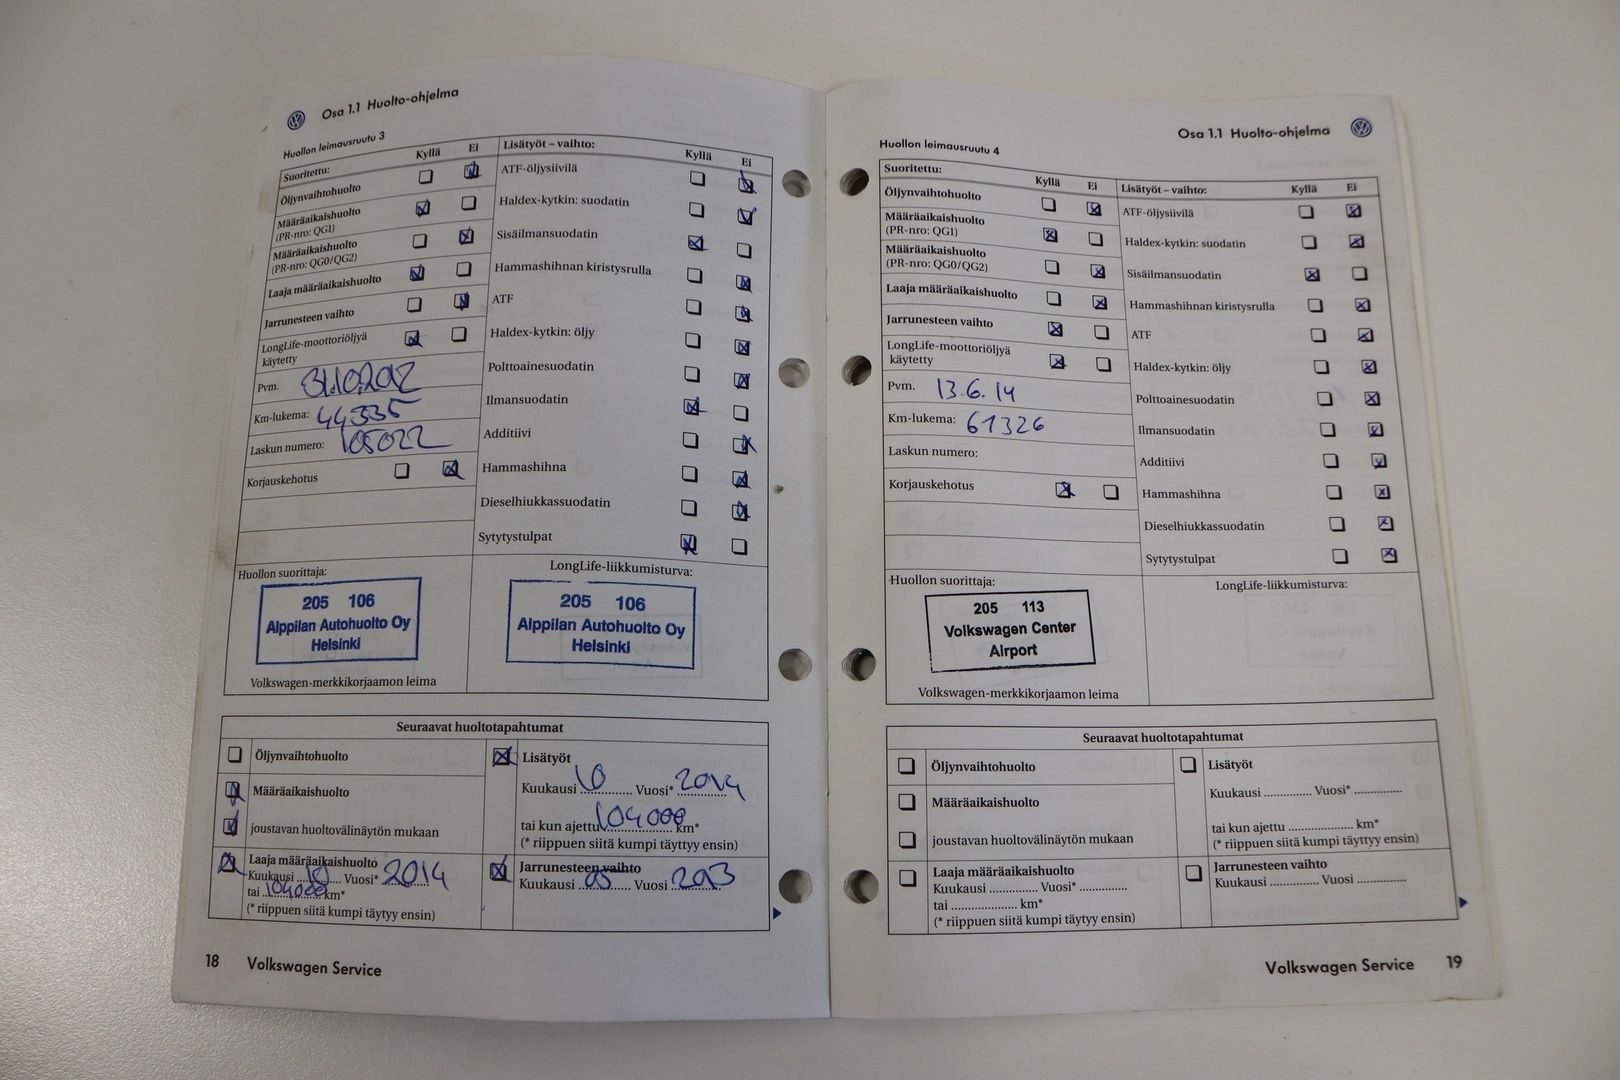 Osa 1.1 Huolto-ohjelma
Huollon leimausruutu 3
Suoritettu: Kyllä Ei
Öljynvaihtohuolto
Määräaikaishuolto
(PR-nro: QG1)
Määräaikaishuolto
(PR-nro: QG0/QG2)
Laaja määräaikaishuolto
Jarrunesteen vaihto
LongLife-moottoriöljyä
käytetty
Pvm. 31.10.2012
Km-lukema: 44335
Laskun numero: 105022
Korjauskehotus
Lisätyöt – vaihto: Kyllä Ei
ATF-öljysiivilä
Haldex-kytkin: suodatin
Sisäilmansuodatin
Hammashihnan kiristysrulla
ATF
Haldex-kytkin: öljy
Polttoainesuodatin
Ilmansuodatin
Additiivi
Hammashihna
Dieselhiukkassuodatin
Sytytystulpat
Huollon suorittaja:
205 106
Alppilan Autohuolto Oy
Helsinki
Volkswagen-merkkikorjaamon leima
LongLife-liikkumisturva:
205 106
Alppilan Autohuolto Oy
Helsinki
Seuraavat huoltotapahtumat
Öljynvaihtohuolto
Määräaikaishuolto
joustavan huoltovälinäytön mukaan
Laaja määräaikaishuolto
Kuukausi 10 Vuosi* 2014
tai 104000 km*
(* riippuen siitä kumpi täytyy ensin)
Lisätyöt
Kuukausi 10 Vuosi* 2014
tai kun ajettu 104000 km*
(* riippuen siitä kumpi täyttyy ensin)
Jarrunesteen vaihto
Kuukausi 05 Vuosi 2013
18 Volkswagen Service
Osa 1.1 Huolto-ohjelma
Huollon leimausruutu 4
Suoritettu: Kyllä Ei
Öljynvaihtohuolto
Määräaikaishuolto
(PR-nro: QG1)
Määräaikaishuolto
(PR-nro: QG0/QG2)
Laaja määräaikaishuolto
Jarrunesteen vaihto
LongLife-moottoriöljyä
käytetty
Pvm. 13.6.14
Km-lukema: 61326
Laskun numero:
Korjauskehotus
Lisätyöt – vaihto: Kyllä Ei
ATF-öljysiivilä
Haldex-kytkin: suodatin
Sisäilmansuodatin
Hammashihnan kiristysrulla
ATF
Haldex-kytkin: öljy
Polttoainesuodatin
Ilmansuodatin
Additiivi
Hammashihna
Dieselhiukkassuodatin
Sytytystulpat
Huollon suorittaja:
205 113
Volkswagen Center
Airport
Volkswagen-merkkikorjaamon leima
LongLife-liikkumisturva:
Seuraavat huoltotapahtumat
Öljynvaihtohuolto
Määräaikaishuolto
joustavan huoltovälinäytön mukaan
Laaja määräaikaishuolto
Kuukausi .............. Vuosi* ..............
tai .................... km*
(* riippuen siitä kumpi täytyy ensin)
Lisätyöt
Kuukausi .............. Vuosi* ..............
tai kun ajettu .................... km*
(* riippuen siitä kumpi täyttyy ensin)
Jarrunesteen vaihto
Kuukausi .............. Vuosi ..............
Volkswagen Service 19